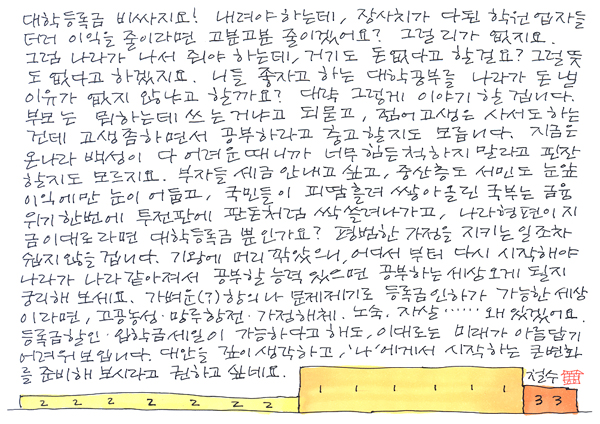 대학등록금 비싸지요! 내려야 하는데, 장사치가 다된 학원업자들
더러 이익을 줄이라면 고분고분 줄이겠어요? 그럴리가 없지요.
그럼 나라가 나서 줘야 하는데, 거기도 돈없다고 할걸요? 그럴뜻
도 없다고 하겠지요. 니들 좋자고 하는 대학공부를 나라가 돈낼
이유가 없지 않냐고 할까요? 대략 그렇게 이야기 할 겁니다.
부모는 뭐하는데 쓰는거냐고 되묻고, 젊어고생은 사서도하는
건데 고생좀하면서 공부하라고 충고할지도 모릅니다. 지금은
온나라 백성이 다 어려운때니까 너무힘든척하지 말라고 핀잔
할지도 모르지요. 부자들 세금 안내고 싶고, 중산층도 서민도 눈앞
이익에만 눈이 어둡고, 국민들이 피땀흘려 쌓아올린 국부는 금융
위기 한번에 투전판에 판돈처럼 싹쓸려나가고, 나라형편이 지
금이대로라면 대학등록금 뿐인가요? 평범한 가정을 지키는 일조차
쉽지않을 겁니다. 기왕에 머리깎았으니, 어디서 부터 다시 시작해야
나라가 나라같아져서 공부할 능력있으면 공부하는세상 오게 될지
궁리해 보세요. 가벼운(?) 항의나 문제제기로 등록금인하가 가능한 세상
이라면, 고공농성·망루항전·가정해체·노숙·자살 …… 왜 있겠어요.
등록금할인·장학금세일이 가능하다고 해도, 이대로는 미래가 아름답기
어려워 보입니다. 대안을 깊이 생각하고, '나'에게서 시작하는 큰변화
를 준비해 보시라고 권하고 싶네요.
철수
2 2 2 2 2 2 2 1 1 1 1 1 1 3 3